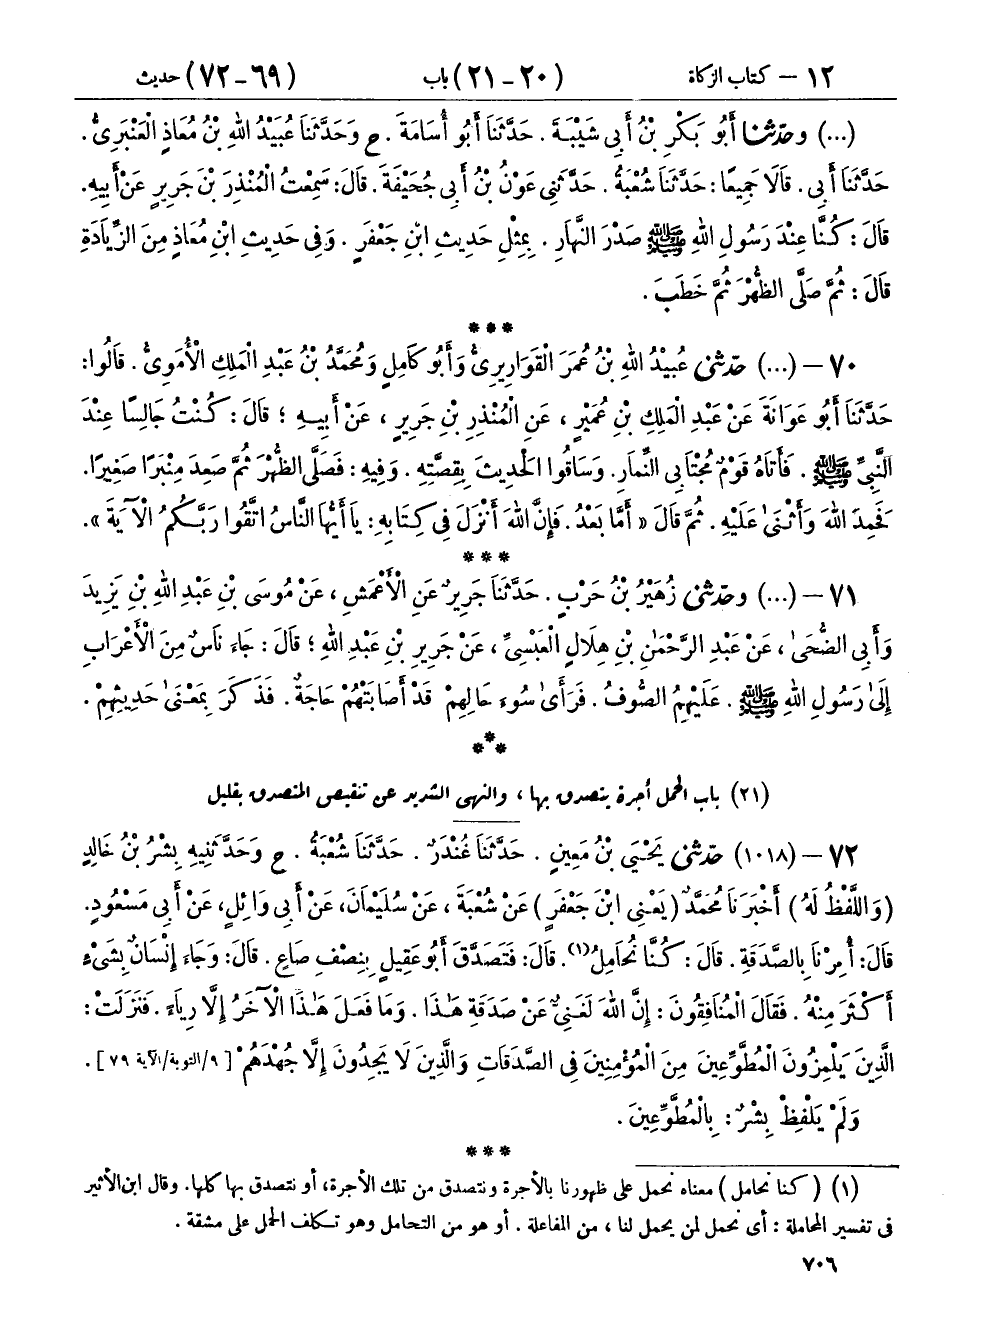 ١٢ – كتاب الزكاة (٢٠-٢١) باب (٦٩-٧٢) حديث
(...) وحَدَّثَنَا أَبُو بَكْرِ بْنُ أَبِي شَيْبَةَ . حَدَّثَنَا أَبُو أُسَامَةَ . ح وَحَدَّثَنَا عُبَيْدُ اللهِ بْنُ مُعَاذٍ الْعَنْبَرِىُّ .
حَدَّثَنَا أَبِي . قَالَا جَمِيعًا : حَدَّثَنَا شُعْبَةُ . حَدَّثَنِي عَوْنُ بْنُ أَبِي جُحَيْفَةَ . قَالَ : سَمِعْتُ الْمُنْذِرَ بْنَ جَرِيرٍ عَنْ أَبِيهِ .
قَالَ : كُنَّا عِنْدَ رَسُولِ اللهِ ﷺ صَدْرَ النَّهَارِ . بِمِثْلِ حَدِيثِ ابْنِ جَعْفَرٍ . وَفِي حَدِيثِ ابْنِ مُعَاذٍ مِنَ الزِّيَادَةِ
قَالَ : ثُمَّ صَلَّى الظُّهْرَ ثُمَّ خَطَبَ .
***
٧٠ – (...) حَدَّثَنِي عُبَيْدُ اللهِ بْنُ عُمَرَ الْقَوَارِيرِىُّ وَأَبُو كَامِلٍ وَمُحَمَّدُ بْنُ عَبْدِ الْمَلِكِ الْأُمَوِىُّ . قَالُوا :
حَدَّثَنَا أَبُو عَوَانَةَ عَنْ عَبْدِ الْمَلِكِ بْنِ عُمَيْرٍ ، عَنِ الْمُنْذِرِ بْنِ جَرِيرٍ ، عَنْ أَبِيهِ ؛ قَالَ : كُنْتُ جَالِسًا عِنْدَ
النَّبِيِّ ﷺ . فَأَتَاهُ قَوْمٌ مُجْتَابِي النِّمَارِ . وَسَاقُوا الْحَدِيثَ بِقِصَّتِهِ . وَفِيهِ : فَصَلَّى الظُّهْرَ ثُمَّ صَعِدَ مِنْبَرًا صَغِيرًا .
فَحَمِدَ اللهَ وَأَثْنَىٰ عَلَيْهِ . ثُمَّ قَالَ « أَمَّا بَعْدُ . فَإِنَّ اللهَ أَنْزَلَ فِي كِتَابِهِ : يَا أَيُّهَا النَّاسُ اتَّقُوا رَبَّكُمُ الْآيَةَ » .
***
٧١ – (...) وحَدَّثَنِي زُهَيْرُ بْنُ حَرْبٍ . حَدَّثَنَا جَرِيرٌ عَنِ الْأَعْمَشِ ، عَنْ مُوسَى بْنِ عَبْدِ اللهِ بْنِ يَزِيدَ
وَأَبِي الضُّحَىٰ ، عَنْ عَبْدِ الرَّحْمٰنِ بْنِ هِلَالٍ الْعَبْسِيِّ ، عَنْ جَرِيرِ بْنِ عَبْدِ اللهِ ؛ قَالَ : جَاءَ نَاسٌ مِنَ الْأَعْرَابِ
إِلَىٰ رَسُولِ اللهِ ﷺ . عَلَيْهِمُ الصُّوفُ . فَرَأَىٰ سُوءَ حَالِهِمْ قَدْ أَصَابَتْهُمْ حَاجَةٌ . فَذَكَرَ بِمَعْنَىٰ حَدِيثِهِمْ .
***
(٢١) باب الحمل أجرة يتصدق بها ، والنهى الشديد عن تنقيص المتصدق بقليل
٧٢ – (١٠١٨) حَدَّثَنِي يَحْيَىٰ بْنُ مَعِينٍ . حَدَّثَنَا غُنْدَرٌ . حَدَّثَنَا شُعْبَةُ . ح وَحَدَّثَنِيهِ بِشْرُ بْنُ خَالِدٍ
(وَاللَّفْظُ لَهُ) أَخْبَرَنَا مُحَمَّدٌ (يَعْنِي ابْنَ جَعْفَرٍ) عَنْ شُعْبَةَ ، عَنْ سُلَيْمَانَ ، عَنْ أَبِي وَائِلٍ ، عَنْ أَبِي مَسْعُودٍ .
قَالَ : أُمِرْنَا بِالصَّدَقَةِ . قَالَ : كُنَّا نُحَامِلُ (١) . قَالَ : فَتَصَدَّقَ أَبُو عَقِيلٍ بِنِصْفِ صَاعٍ . قَالَ : وَجَاءَ إِنْسَانٌ بِشَيْءٍ
أَكْثَرَ مِنْهُ . فَقَالَ الْمُنَافِقُونَ : إِنَّ اللهَ لَغَنِيٌّ عَنْ صَدَقَةِ هَٰذَا . وَمَا فَعَلَ هَٰذَا الْآخَرُ إِلَّا رِيَاءً . فَنَزَلَتْ :
الَّذِينَ يَلْمِزُونَ الْمُطَّوِّعِينَ مِنَ الْمُؤْمِنِينَ فِي الصَّدَقَاتِ وَالَّذِينَ لَا يَجِدُونَ إِلَّا جُهْدَهُمْ [ ٩/التوبة/الآية ٧٩ ] .
وَلَمْ يَلْفِظْ بِشْرٌ : بِالْمُطَّوِّعِينَ .
***
(١) ( كنا نحامل ) معناه نحمل على ظهورنا بالأجرة ونتصدق من تلك الأجرة، أو نتصدق بها كلها. وقال ابن الأثير
فى تفسير المحاملة : أى نحمل لمن يحمل لنا ، من المفاعلة . أو هو من التحامل وهو تكلف الحمل على مشقة .
٧٠٦